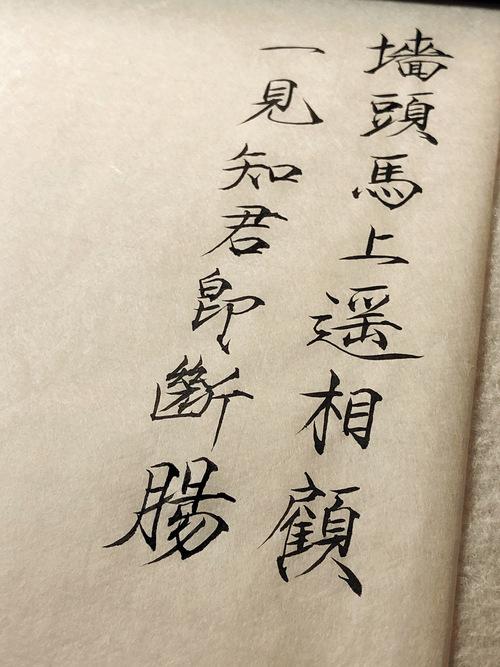 墻頭馬上遥相顧
一見知君即斷腸